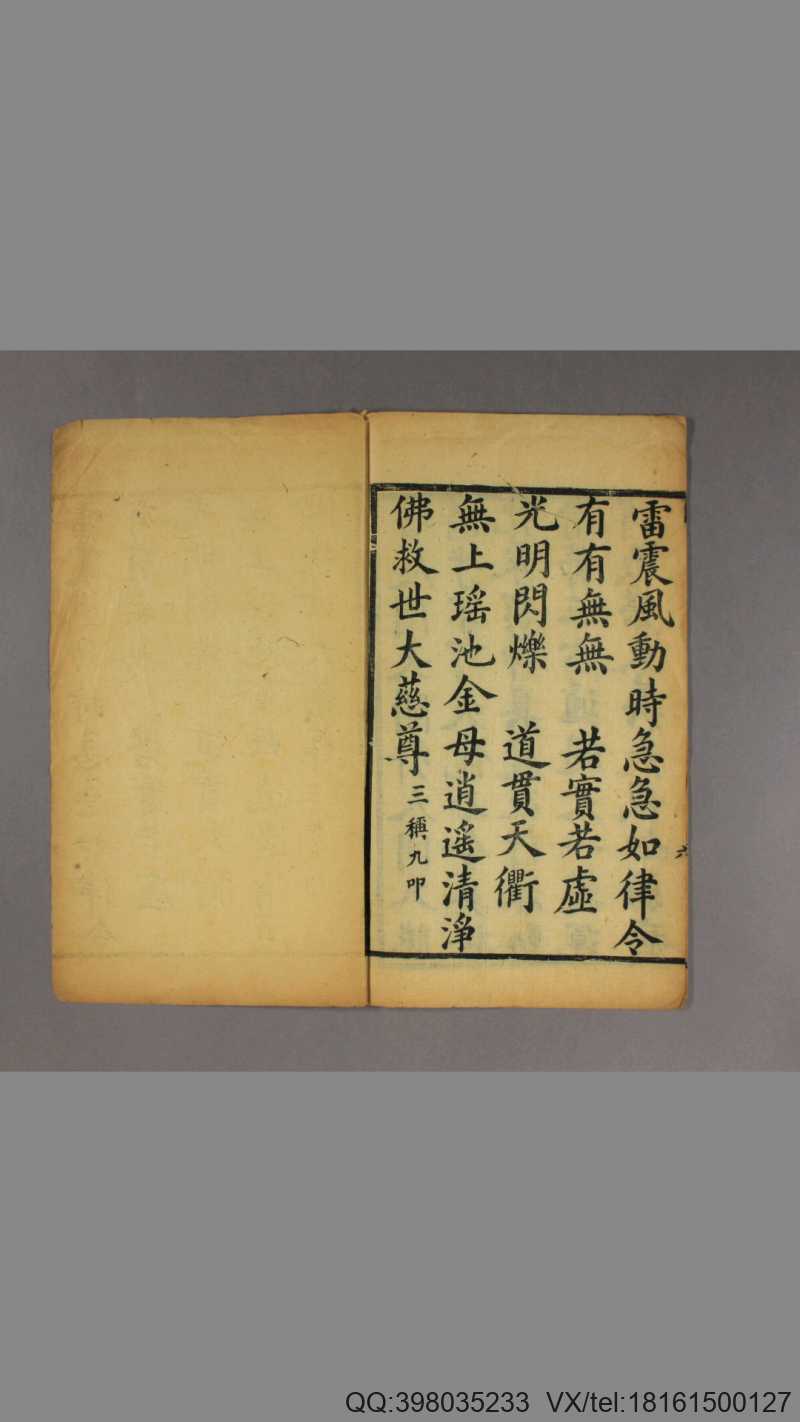 雷震風動時急急如律令
有有無無　若實若虛
光明閃爍　道貫天衢
無上瑶池金母逍遥清淨
佛救世大慈尊三稱九叩
六
QQ:398035233 VX/tel:18161500127